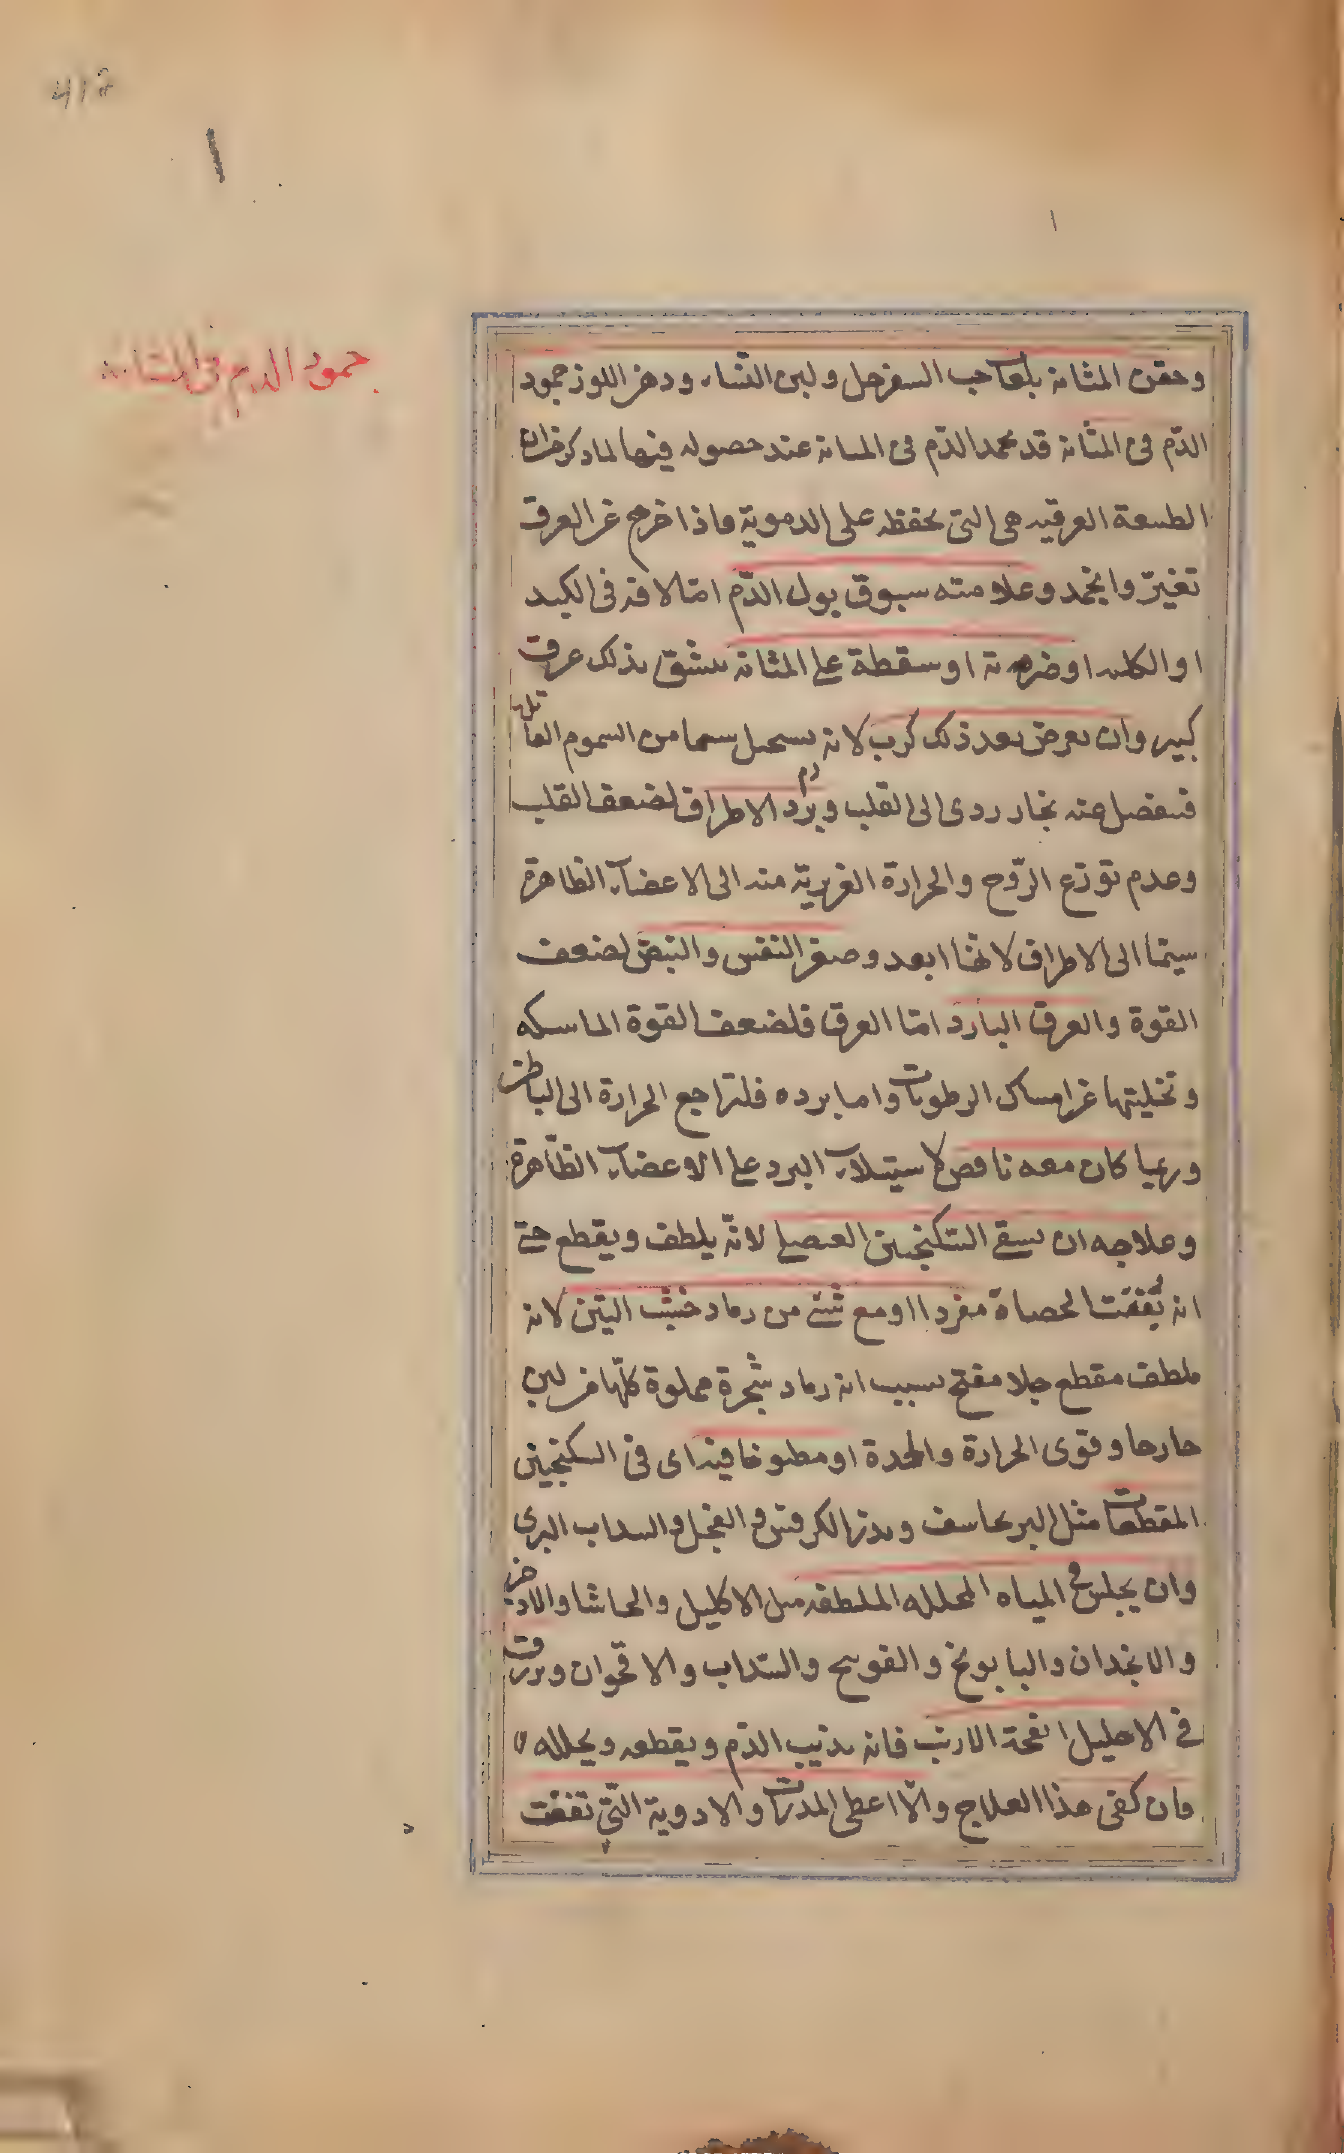 جمود الدم فى المثانة
وحقن المثانة بلعاب حب السفرجل ولبن النساء ودهن اللوز جمود
الدّم فى المثانة قد يجمد الدّم فى المثانة عند حصوله فيها لما ذكر من ان
الطبيعة العرقيه هى التى تحفظه على الدموية فاذا خرج عن العرق
تغيّر وانجمد وعلامته سبوق بول الدّم امّا لافة فى الكبد
او الكلية او ضربة او سقطة على المثانة ينشق بذلك عرق
كبير وان يعرض بعد ذلك كرب لانه يستحيل سما من السموم القاتلة
فينفصل عنه بخار ردى الى القلب وبرد الاطراف لضعف القلب
وعدم توزع الرّوح والحرارة الغريزيّة منه الى الاعضاء الظاهرة
سيّما الى الاطراف لانّها ابعد وصغر النفس والنبض لضعف
القوة والعرق البارد امّا العرق فلضعف القوة الماسكه
وتخليتها عن امساك الرطوبات واما برده فلتراجع الحرارة الى الباطن
وربما كان معه نافض لاستيلاء البرد على الاعضاء الظّاهرة
وعلاجه ان يسقى السّكنجبين العنصلى لانّه يلطف ويقطع حتى
انه يُفتّت الحصاة مفردا او مع شئ من رماد خشب التين لانه
ملطف مقطع جلا مفتح بسبب انه رماد شجرة مملوة كلّها من لبن
حار حاد قوى الحرارة والحدة او مطبوخا فيه اى فى السكنجبين
المقطعات مثل البرنجاسف وبذر الكرفس والفجل والسداب البرى
وان يجلس فى المياه المحلله الملطفه مثل الاكليل والحاشا والاذخر
والانجدان والبابونج والفوتنج والسّداب والاقحوان ويزرق
فى الاحليل انفحة الارنب فانه يذيب الدّم ويقطعه ويحلله
فان كفى هذا العلاج والّا اعطى المدرات والادوية الّتى تفتت